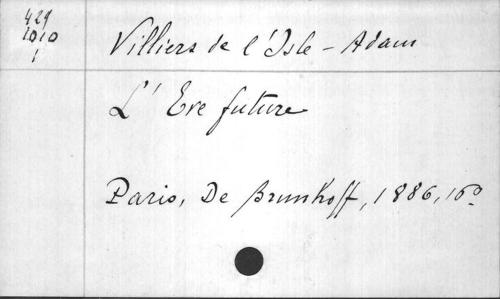 429
1010
1
Villiers de l'Isle-Adam
L'Eve future
Paris, De Brunhoff, 1886, 16º